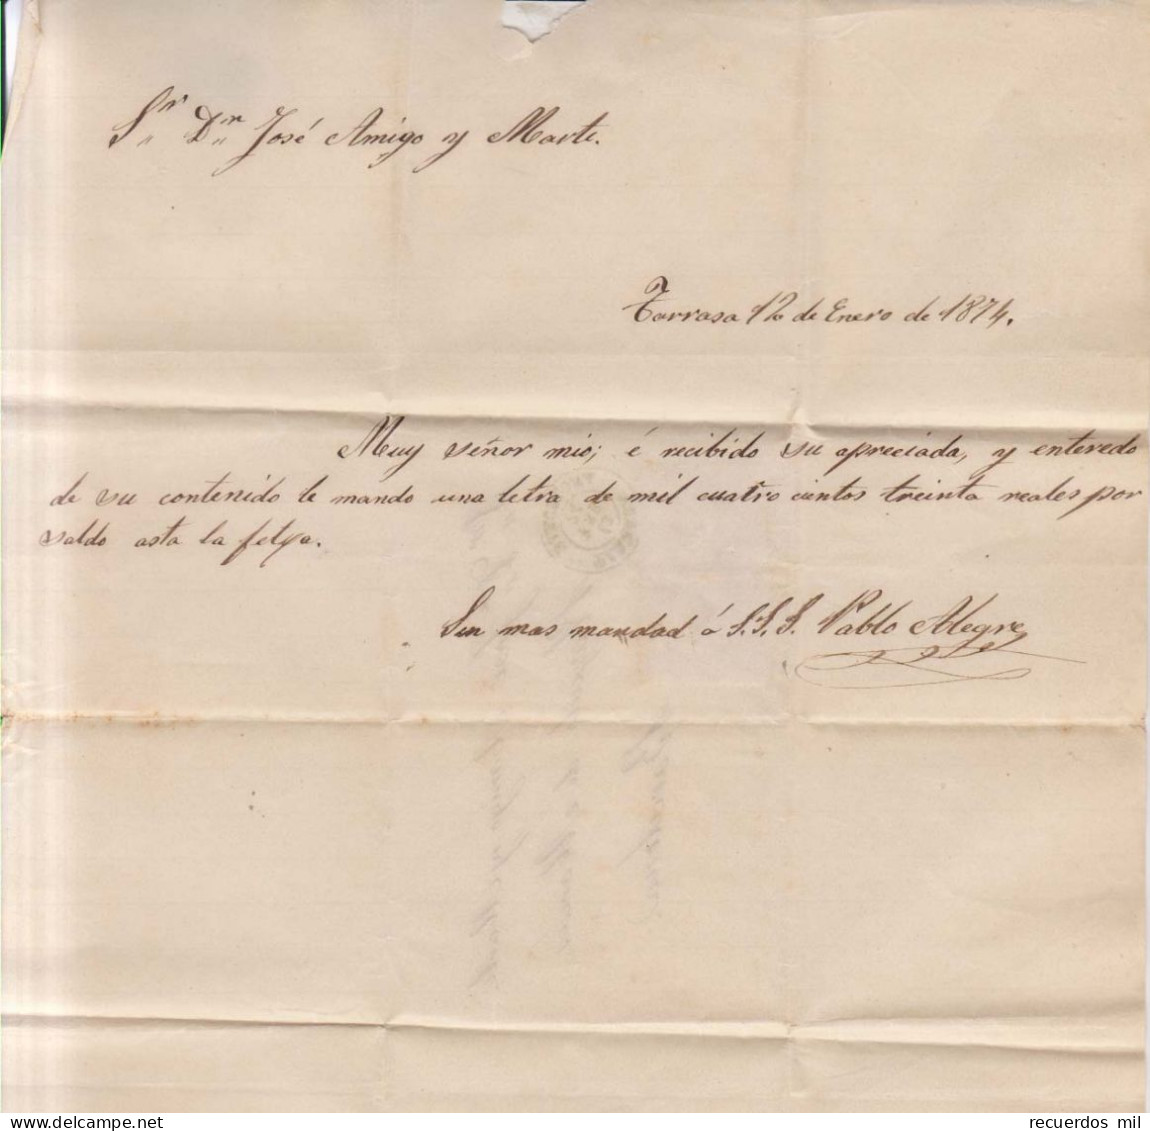 Sr Dn José Amigo y Marti.
Tarrasa 12 de Enero de 1874.
Muy señor mio; é recibido su apreciada, y enteredo
de su contenido le mando una letra de mil cuatro cientos treinta reales por
saldo asta la felxa.
Sin mas mandad á S.S.S. Pablo Alegre
recuerdos mil